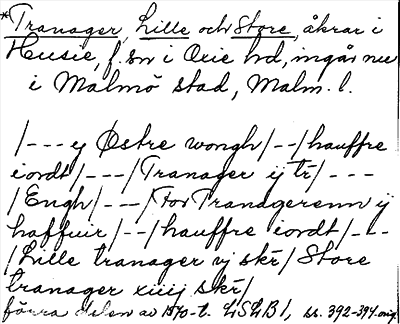 *Tranager, Lille och Store, åkrar i
Husie, f. sn i Oxie hd, ingår nu
i Malmö stad, Malm. l.
/---y Østre wongh/--/hauffre
iordt/---/Tranager ij tr/---
/Engh/---/For Tranagerenn ij
haffuir/--/hauffre iordt/---
/Lille tranager vj skr/Store
tranager xiiij skr/
förra delen av 1570-t. LSLB1, s. 392-394 orig.